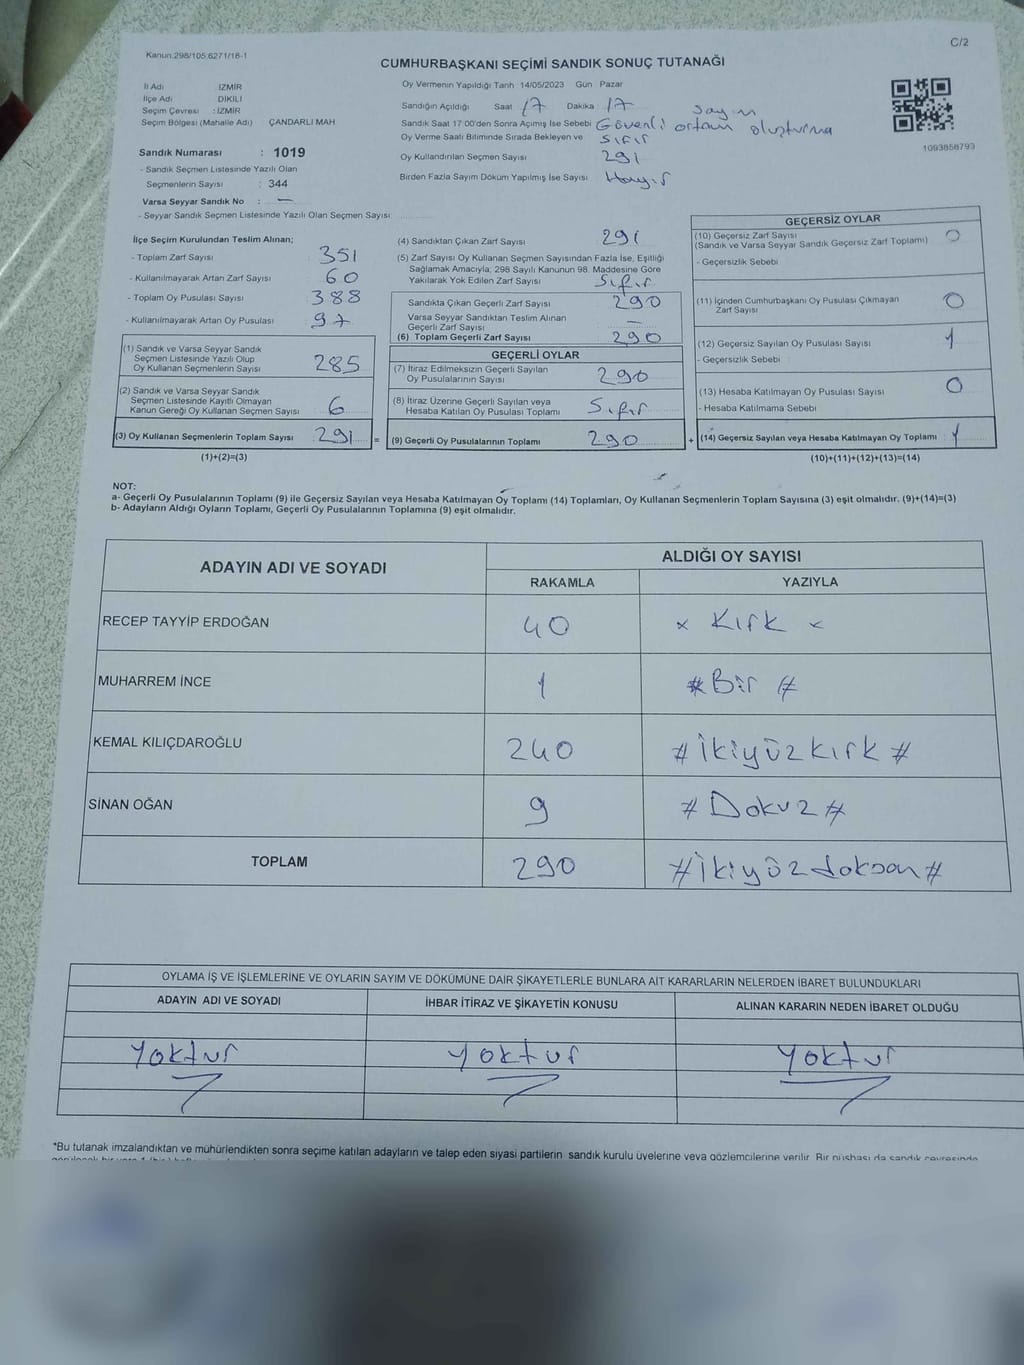 C/2
Kanun:298/105:6271/16-1
CUMHURBAŞKANI SEÇİMİ SANDIK SONUÇ TUTANAĞI
İl Adı İZMİR
İlçe Adı DİKİLİ
Seçim Çevresi : İZMİR
Seçim Bölgesi (Mahalle Adı) ÇANDARLI MAH
Sandık Numarası : 1019
- Sandık Seçmen Listesinde Yazılı Olan
Seçmenlerin Sayısı : 344
Varsa Seyyar Sandık No : —
- Seyyar Sandık Seçmen Listesinde Yazılı Olan Seçmen Sayısı
Oy Vermenin Yapıldığı Tarih 14/05/2023 Gün Pazar
Sandığın Açıldığı Saat 17 Dakika 17
Sandık Saat 17:00'den Sonra Açımış İse Sebebi Güvenli sayım ortamı oluşturma
Oy Verme Saati Bitiminde Sırada Bekleyen ve Sıfır
Oy Kullandırılan Seçmen Sayısı 291
Birden Fazla Sayım Döküm Yapılmış İse Sayısı Hayır
1093858793
İlçe Seçim Kurulundan Teslim Alınan;
- Toplam Zarf Sayısı 351
- Kullanılmayarak Artan Zarf Sayısı 60
- Toplam Oy Pusulası Sayısı 388
- Kullanılmayarak Artan Oy Pusulası 97
(1) Sandık ve Varsa Seyyar Sandık
Seçmen Listesinde Yazılı Olup
Oy Kullanan Seçmenlerin Sayısı 285
(2) Sandık ve Varsa Seyyar Sandık
Seçmen Listesinde Kayıtlı Olmayan
Kanun Gereği Oy Kullanan Seçmen Sayısı 6
(3) Oy Kullanan Seçmenlerin Toplam Sayısı 291 =
(1)+(2)=(3)
(4) Sandıktan Çıkan Zarf Sayısı 291
(5) Zarf Sayısı Oy Kullanan Seçmen Sayısından Fazla İse, Eşitliği
Sağlamak Amacıyla; 298 Sayılı Kanunun 98. Maddesine Göre
Yakılarak Yok Edilen Zarf Sayısı Sıfır
Sandıkta Çıkan Geçerli Zarf Sayısı 290
Varsa Seyyar Sandıktan Teslim Alınan
Geçerli Zarf Sayısı —
(6) Toplam Geçerli Zarf Sayısı 290
GEÇERLİ OYLAR
(7) İtiraz Edilmeksizin Geçerli Sayılan
Oy Pusulalarının Sayısı 290
(8) İtiraz Üzerine Geçerli Sayılan veya
Hesaba Katılan Oy Pusulası Toplamı Sıfır
(9) Geçerli Oy Pusulalarının Toplamı 290 +
GEÇERSİZ OYLAR
(10) Geçersiz Zarf Sayısı 0
(Sandık ve Varsa Seyyar Sandık Geçersiz Zarf Toplamı)
- Geçersizlik Sebebi
(11) İçinden Cumhurbaşkanı Oy Pusulası Çıkmayan
Zarf Sayısı 0
(12) Geçersiz Sayılan Oy Pusulası Sayısı 1
- Geçersizlik Sebebi :
(13) Hesaba Katılmayan Oy Pusulası Sayısı 0
- Hesaba Katılmama Sebebi
(14) Geçersiz Sayılan veya Hesaba Katılmayan Oy Toplamı : 1
(10)+(11)+(12)+(13)=(14)
NOT:
a- Geçerli Oy Pusulalarının Toplamı (9) ile Geçersiz Sayılan veya Hesaba Katılmayan Oy Toplamı (14) Toplamları, Oy Kullanan Seçmenlerin Toplam Sayısına (3) eşit olmalıdır. (9)+(14)=(3)
b- Adayların Aldığı Oyların Toplamı, Geçerli Oy Pusulalarının Toplamına (9) eşit olmalıdır.
ADAYIN ADI VE SOYADI
ALDIĞI OY SAYISI
RAKAMLA YAZIYLA
RECEP TAYYİP ERDOĞAN 40 x Kırk x
MUHARREM İNCE 1 # Bir #
KEMAL KILIÇDAROĞLU 240 # İkiyüzkırk #
SİNAN OĞAN 9 # Dokuz #
TOPLAM 290 # İkiyüzdoksan #
OYLAMA İŞ VE İŞLEMLERİNE VE OYLARIN SAYIM VE DÖKÜMÜNE DAİR ŞİKAYETLERLE BUNLARA AİT KARARLARIN NELERDEN İBARET BULUNDUKLARI
ADAYIN ADI VE SOYADI İHBAR İTİRAZ VE ŞİKAYETİN KONUSU ALINAN KARARIN NEDEN İBARET OLDUĞU
Yoktur Yoktur Yoktur
*Bu tutanak imzalandıktan ve mühürlendikten sonra seçime katılan adayların ve talep eden siyasi partilerin sandık kurulu üyelerine veya gözlemcilerine verilir. Bir nüshası da sandık çevresinde